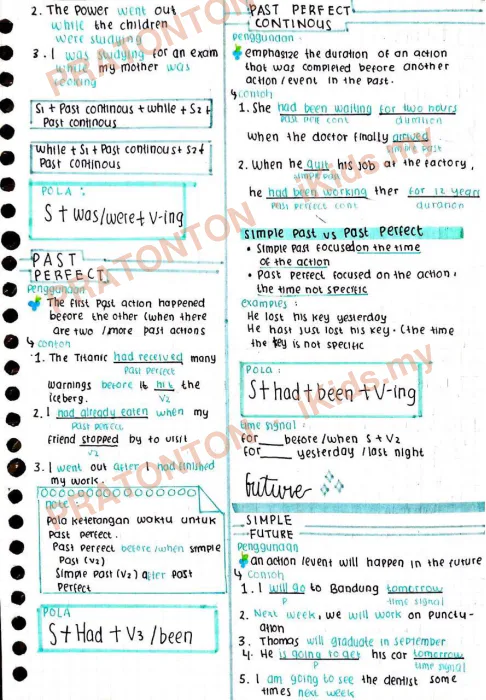 2. The Power went out
while the children
were studying
3. I was studying for an exam
while my mother was
cooking
S1 + Past continous + while + S2 +
Past continous
while + S1 + Past continous + S2 +
Past continous
POLA :
S + was/were + V-ing
PAST
PERFECT
Penggunaan
The first past action happened
before the other (when there
are two / more past actions
contoh
1. The Titanic had received many
Past Perfect
warnings before it hit the
V2
iceberg.
2. I had already eaten when my
Past Perfect
friend stopped by to visit
V2
3. I went out after I had finished
my work.
note :
Pola keterangan waktu untuk
Past Perfect.
Past Perfect before/when simple
Past (V2)
Simple Past (V2) after Past
Perfect
POLA
S + Had + V3 / been
PAST PERFECT
CONTINOUS
Penggunaan :
emphasize the duration of an action
that was completed before another
action / event in the past.
contoh
1. She had been waiting for two hours
Past Perf cont duration
when the doctor finally arrived
simple past
2. When he quit his job at the factory,
simple past
he had been working ther for 12 years
Past perfect cont duration
Simple Past vs Past Perfect
• Simple past focused on the time
of the action
• Past Perfect focused on the action,
the time not specific
examples :
He lost his key yesterday
He hast just lost his key. (the time
the key is not specific
POLA :
S + had + been + V-ing
time signal :
for ___ before / when S + V2
for ___ yesterday / last night
future
SIMPLE
FUTURE
Penggunaan
an action / event will happen in the future
contoh
1. I will go to Bandung tomorrow
P time signal
2. Next week, we will work on punctu-
ation
3. Thomas will graduate in September
4. He is going to get his car tomorrow
P time signal
5. I am going to see the dentist some
times next week
PRATONTON iKids.my
PRATONTON iKids.my
PRATONTON iKids.my